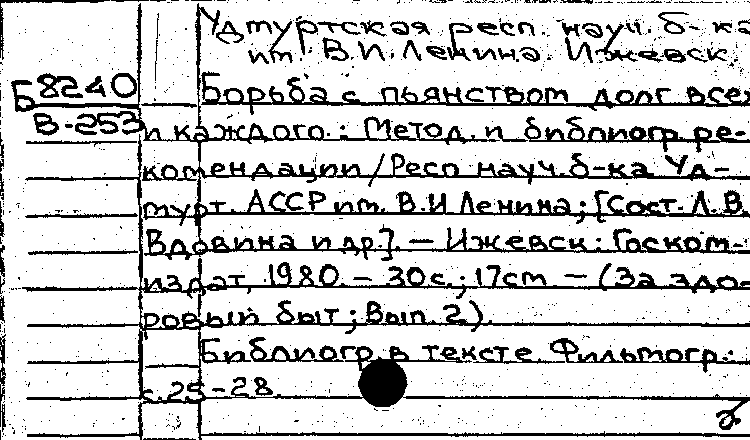 Удмуртская респ. науч. б-ка
им. В.И. Ленина. Ижевск.
Б8240
В-253
Борьба с пьянством долг всех
и каждого.: Метод. и библиогр. ре-
комендации/Респ науч. б-ка Уд-
мурт. АССР им. В.И Ленина; [Сост. Л.В.
Вдовина и др.]. — Ижевск: Госком-
издат, 1980. – 30с.; 17см — (За здо-
ровый быт; Вып. 2).
Библиогр. в тексте. Фильмогр.:
с. 25-28.